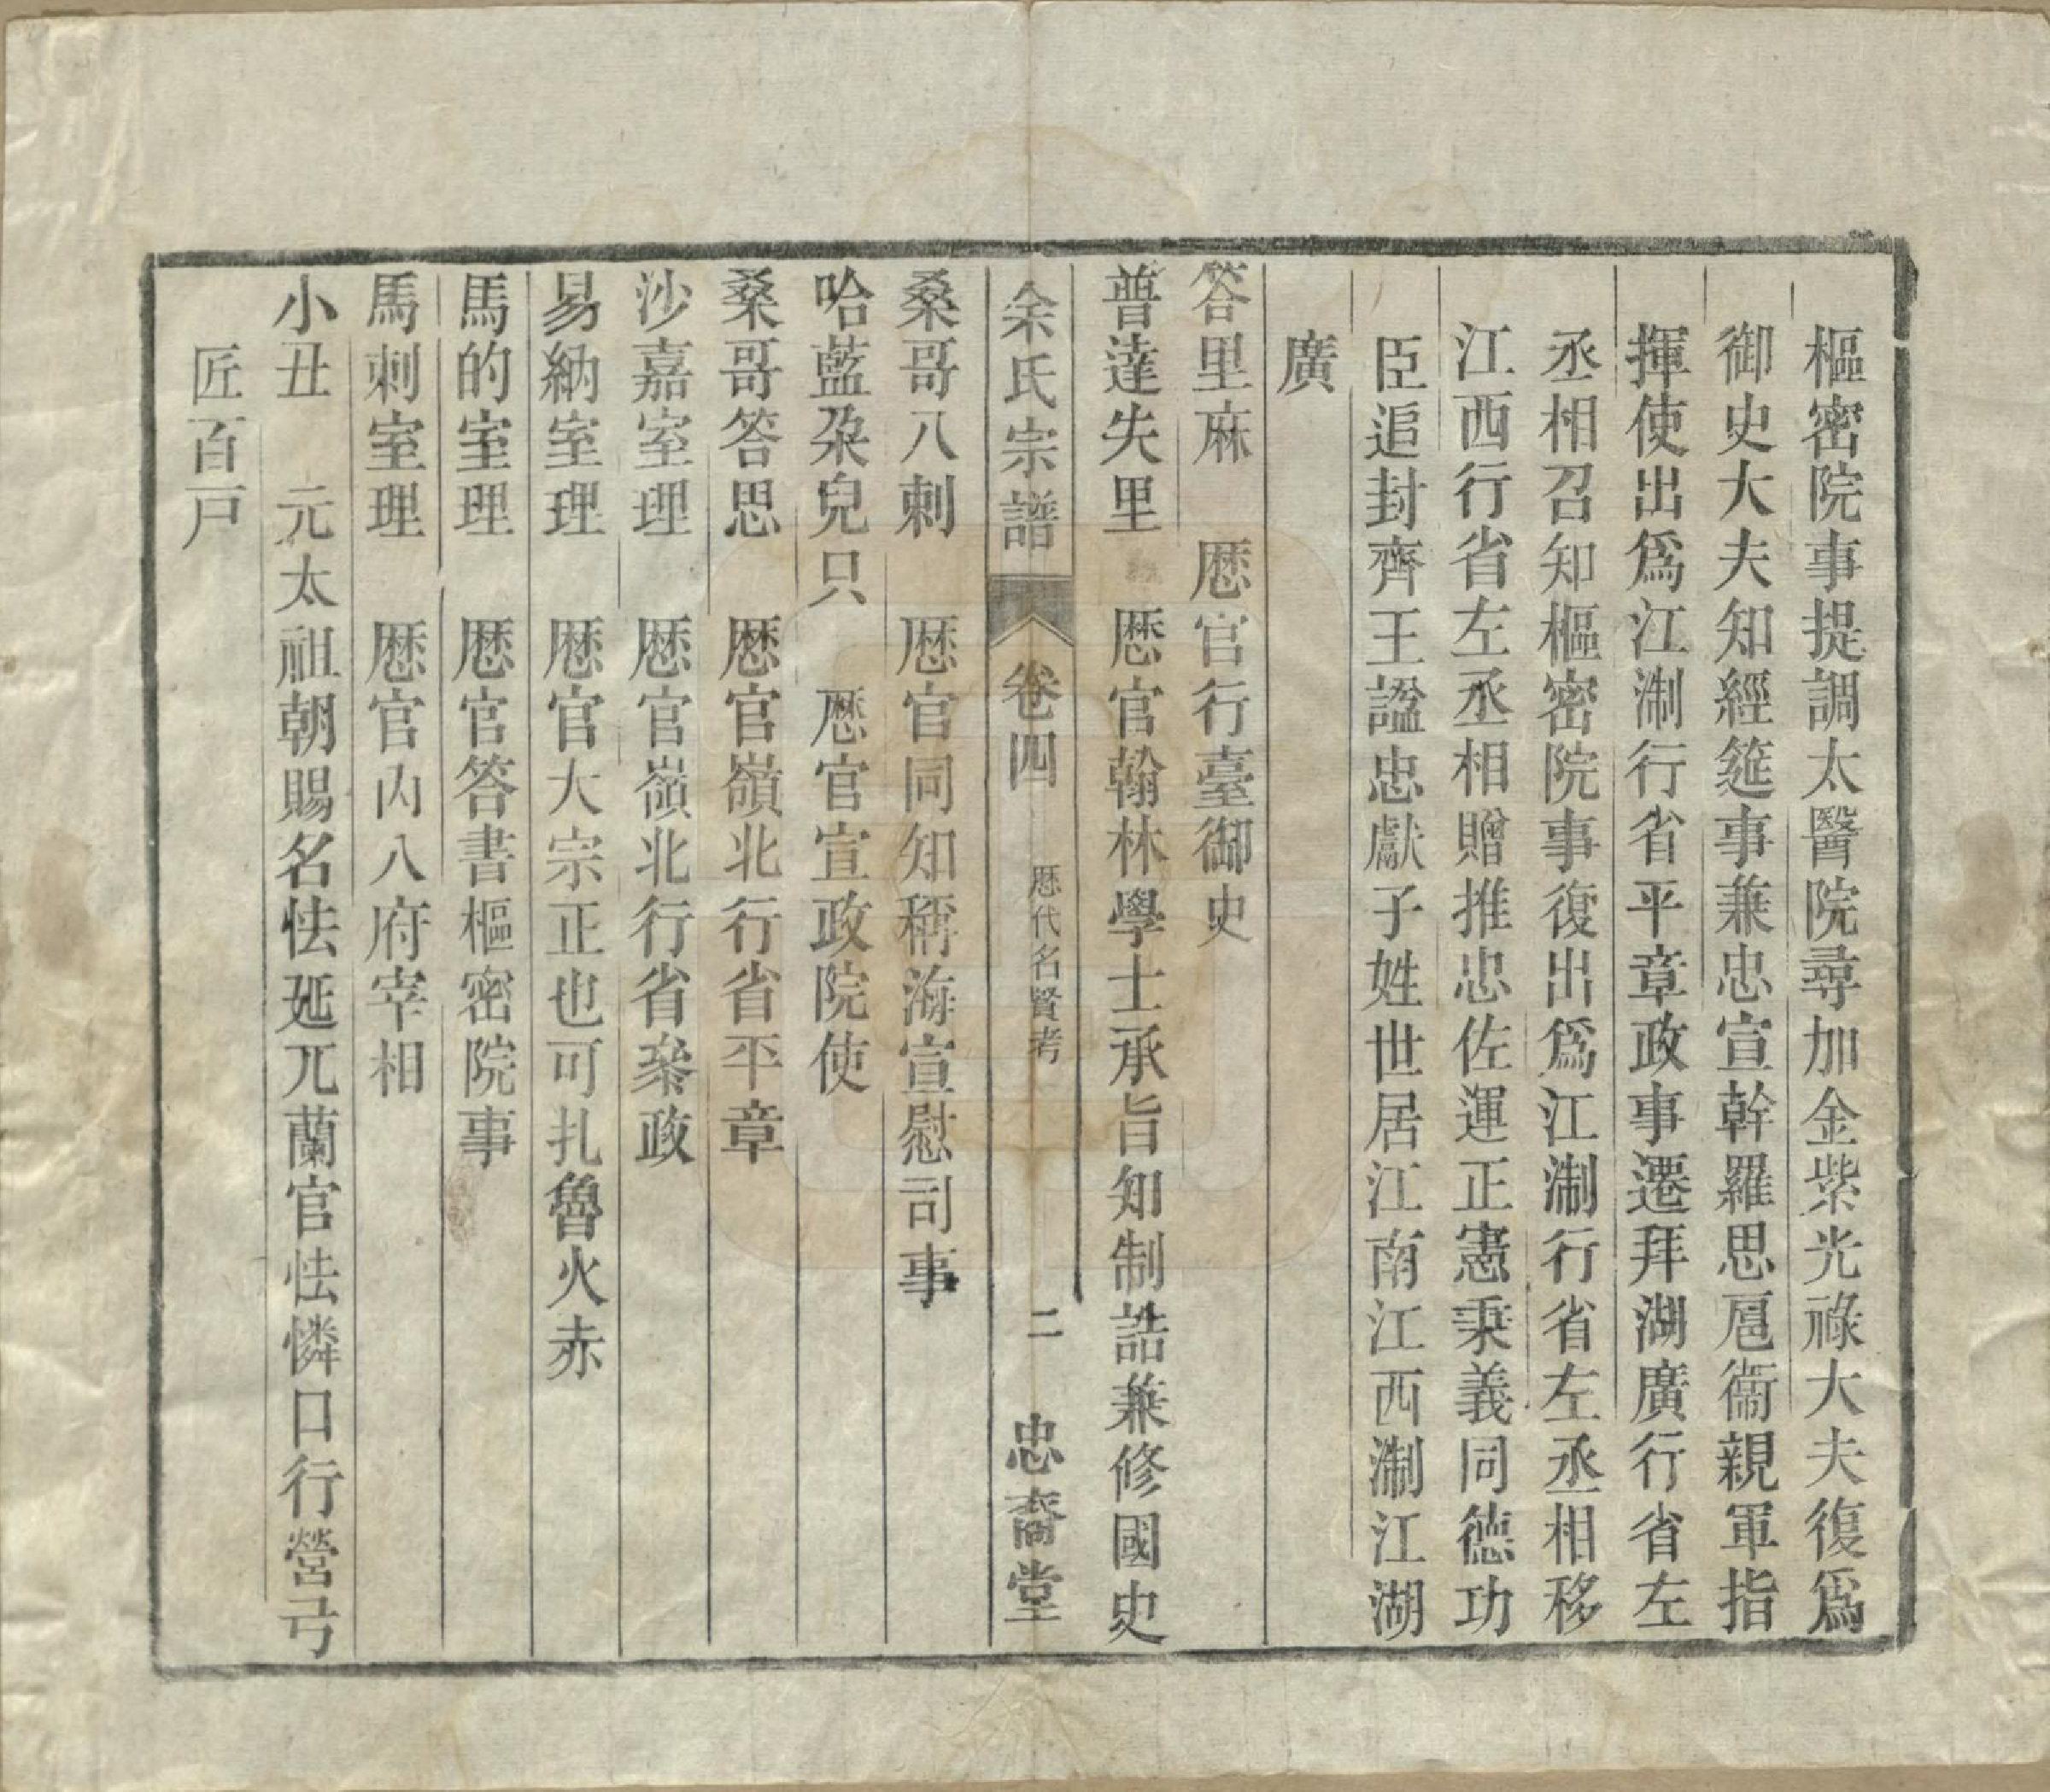 樞密院事提調太醫院尋加金紫光祿大夫復爲
御史大夫知經筵事兼忠宣幹羅思扈衞親軍指
揮使出爲江淛行省平章政事遷拜湖廣行省左
丞相召知樞密院事復出爲江淛行省左丞相移
江西行省左丞相贈推忠佐運正憲秉義同德功
臣追封齊王諡忠獻子姓世居江南江西淛江湖
廣
答里麻　厯官行臺御史
普達失里　厯官翰林學士承旨知制誥兼修國史
余氏宗譜　卷四　厯代名賢考　二　忠裔堂
桑哥八剌　厯官同知稱海宣慰司事
哈藍朶兒只　厯官宣政院使
桑哥答思　厯官嶺北行省平章
沙嘉室理　厯官嶺北行省叅政
易納室理　厯官大宗正也可扎魯火赤
馬的室理　厯官答書樞密院事
馬刺室理　厯官內八府宰相
小丑　元太祖朝賜名怯延兀蘭官怯憐口行營弓
匠百戸